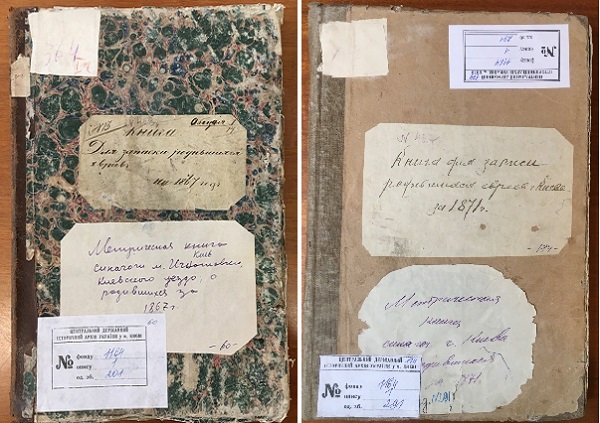 364
Книга
Для записки родившихся
евреевъ
на 1867 годъ
Метрическая книга
синагоги м. Игнатовки,
Киевского уезда, о
родившихся за
1867 г.
-60-
ЦЕНТРАЛЬНИЙ ДЕРЖАВНИЙ
ІСТОРИЧНИЙ АРХІВ УКРАЇНИ у м. КИЄВІ
№
фонду 1164
опису 1
од. зб. 201
№
фонду 1164
опису 1
од. зб.
Книга для записи
родившихся евреев г. Киева
за 1871 г.
Метрическая
книга
синагоги г. Киева
о родившихся
за 1871.
ЦЕНТРАЛЬНИЙ ДЕРЖАВНИЙ
ІСТОРИЧНИЙ АРХІВ УКРАЇНИ у м. КИЄВІ
№
фонду 1164
опису 1
од. зб.